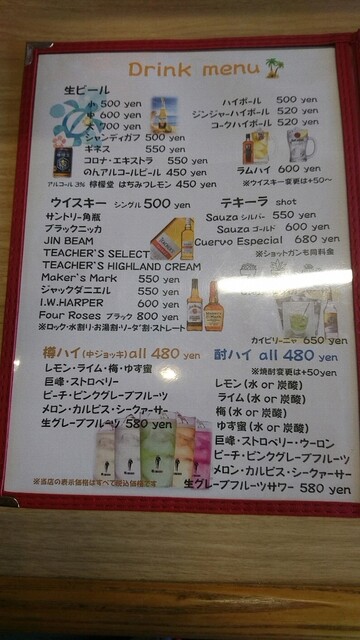 Drink menu
生ビール
小 500 yen
中 600 yen
大 700 yen
シャンディガフ 500 yen
ギネス 550 yen
コロナ・エキストラ 550 yen
のんアルコールビール 450 yen
アルコール 3% 檸檬堂 はちみつレモン 450 yen
ハイボール 500 yen
ジンジャーハイボール 520 yen
コークハイボール 520 yen
ラムハイ 600 yen
※ウイスキー変更は+50~
ウイスキー シングル 500 yen
サントリー角瓶
ブラックニッカ
JIN BEAM
TEACHER'S SELECT
TEACHER'S HIGHLAND CREAM
Maker's Mark 550 yen
ジャックダニエル 550 yen
I.W.HARPER 600 yen
Four Roses ブラック 800 yen
※ロック・水割り・お湯割・ソーダ割・ストレート
テキーラ shot
Sauza シルバー 550 yen
Sauza ゴールド 600 yen
Cuervo Especial 680 yen
※ショットガンも同料金
カイピリーニャ 650 yen
樽ハイ (中ジョッキ) all 480 yen
レモン・ライム・梅・ゆず蜜
巨峰・ストロベリー
ピーチ・ピンクグレープフルーツ
メロン・カルピス・シークァーサー
生グレープフルーツ 580 yen
酎ハイ all 480 yen
※焼酎変更は+50yen
レモン (水 or 炭酸)
ライム (水 or 炭酸)
梅 (水 or 炭酸)
ゆず蜜 (水 or 炭酸)
巨峰・ストロベリー・ウーロン
ピーチ・ピンクグレープフルーツ
メロン・カルピス・シークァーサー
生グレープフルーツサワー 580 yen
※当店の表示価格はすべて税込価格です